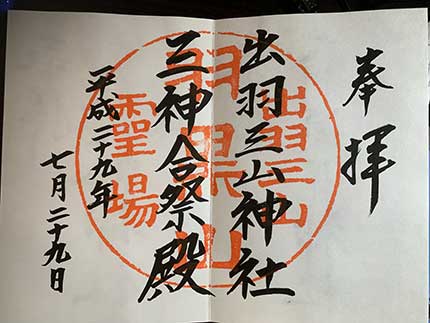 奉拝
出羽三山神社
三神合祭殿
平成二十九年
七月二十九日
出羽三山
羽黒山
霊場